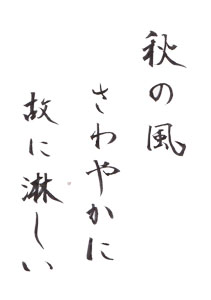 秋の風
さわやかに
故に淋しい